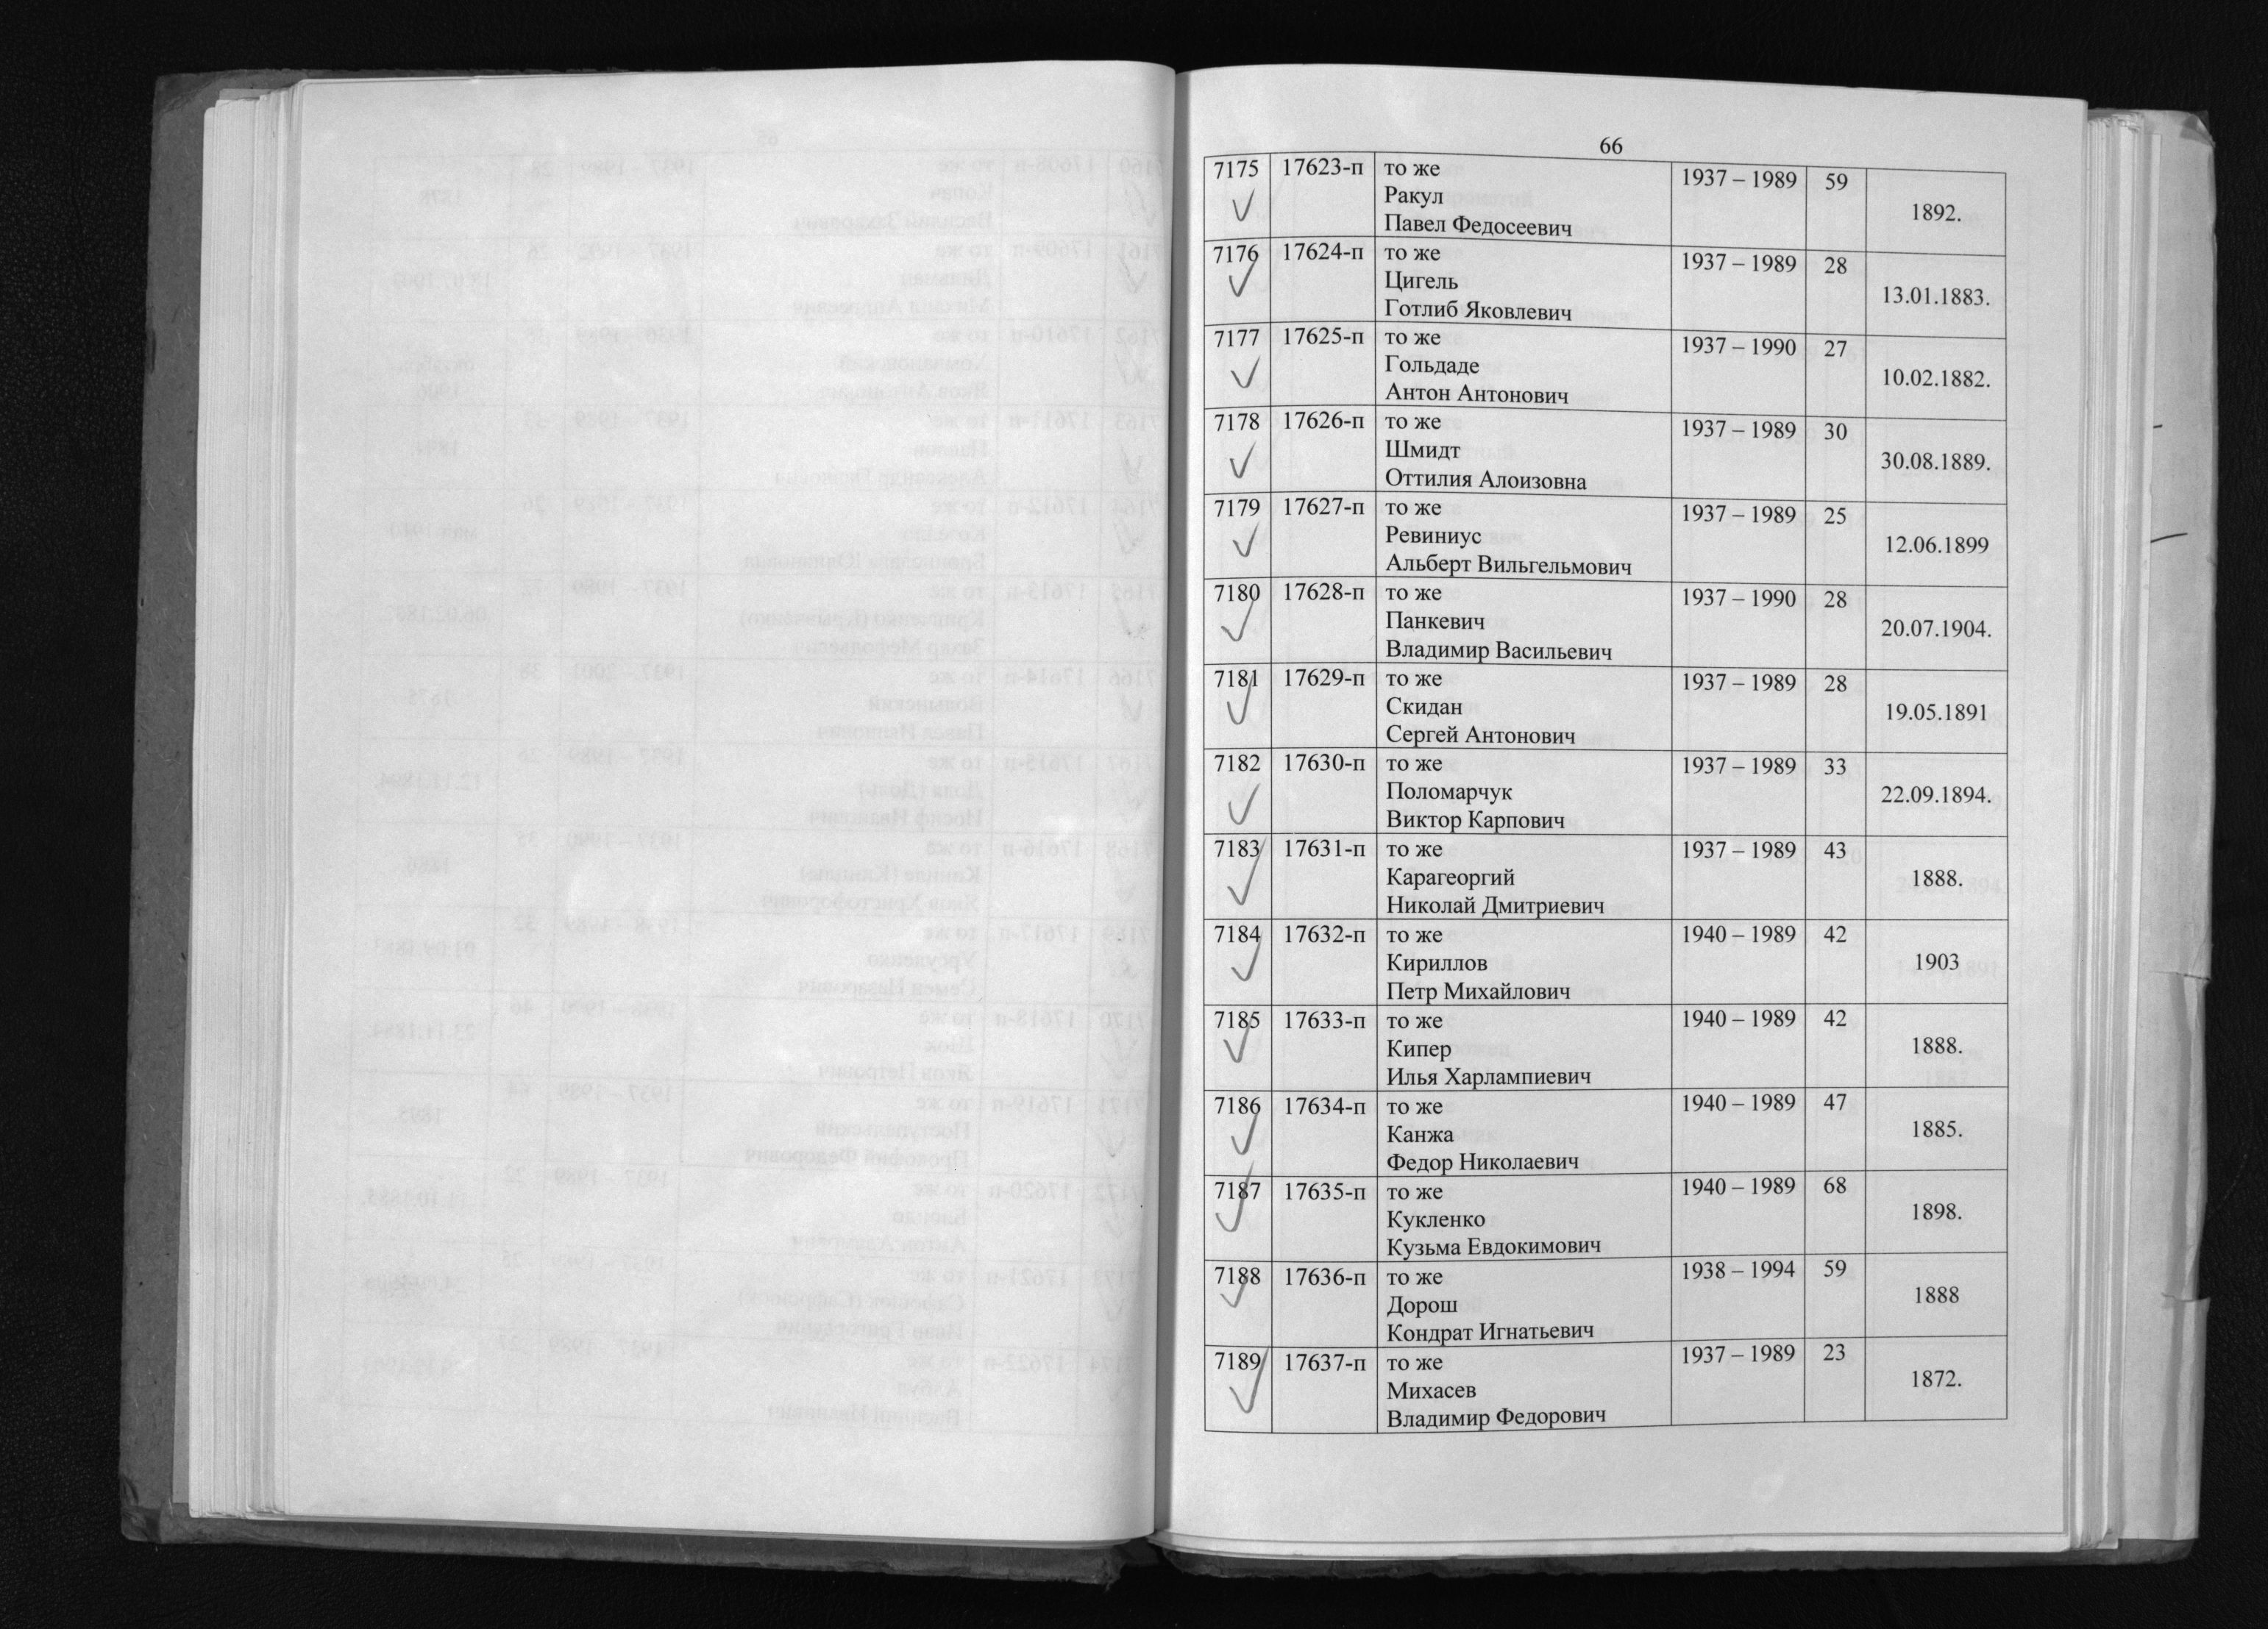 66
7175 17623-п то же 1937 – 1989 59
Ракул 1892.
Павел Федосеевич
7176 17624-п то же 1937 – 1989 28
Цигель 13.01.1883.
Готлиб Яковлевич
7177 17625-п то же 1937 – 1990 27
Гольдаде 10.02.1882.
Антон Антонович
7178 17626-п то же 1937 – 1989 30
Шмидт 30.08.1889.
Оттилия Алоизовна
7179 17627-п то же 1937 – 1989 25
Ревиниус 12.06.1899
Альберт Вильгельмович
7180 17628-п то же 1937 – 1990 28
Панкевич 20.07.1904.
Владимир Васильевич
7181 17629-п то же 1937 – 1989 28
Скидан 19.05.1891
Сергей Антонович
7182 17630-п то же 1937 – 1989 33
Поломарчук 22.09.1894.
Виктор Карпович
7183 17631-п то же 1937 – 1989 43
Карагеоргий 1888.
Николай Дмитриевич
7184 17632-п то же 1940 – 1989 42
Кириллов 1903
Петр Михайлович
7185 17633-п то же 1940 – 1989 42
Кипер 1888.
Илья Харлампиевич
7186 17634-п то же 1940 – 1989 47
Канжа 1885.
Федор Николаевич
7187 17635-п то же 1940 – 1989 68
Кукленко 1898.
Кузьма Евдокимович
7188 17636-п то же 1938 – 1994 59
Дорош 1888
Кондрат Игнатьевич
7189 17637-п то же 1937 – 1989 23
Михасев 1872.
Владимир Федорович